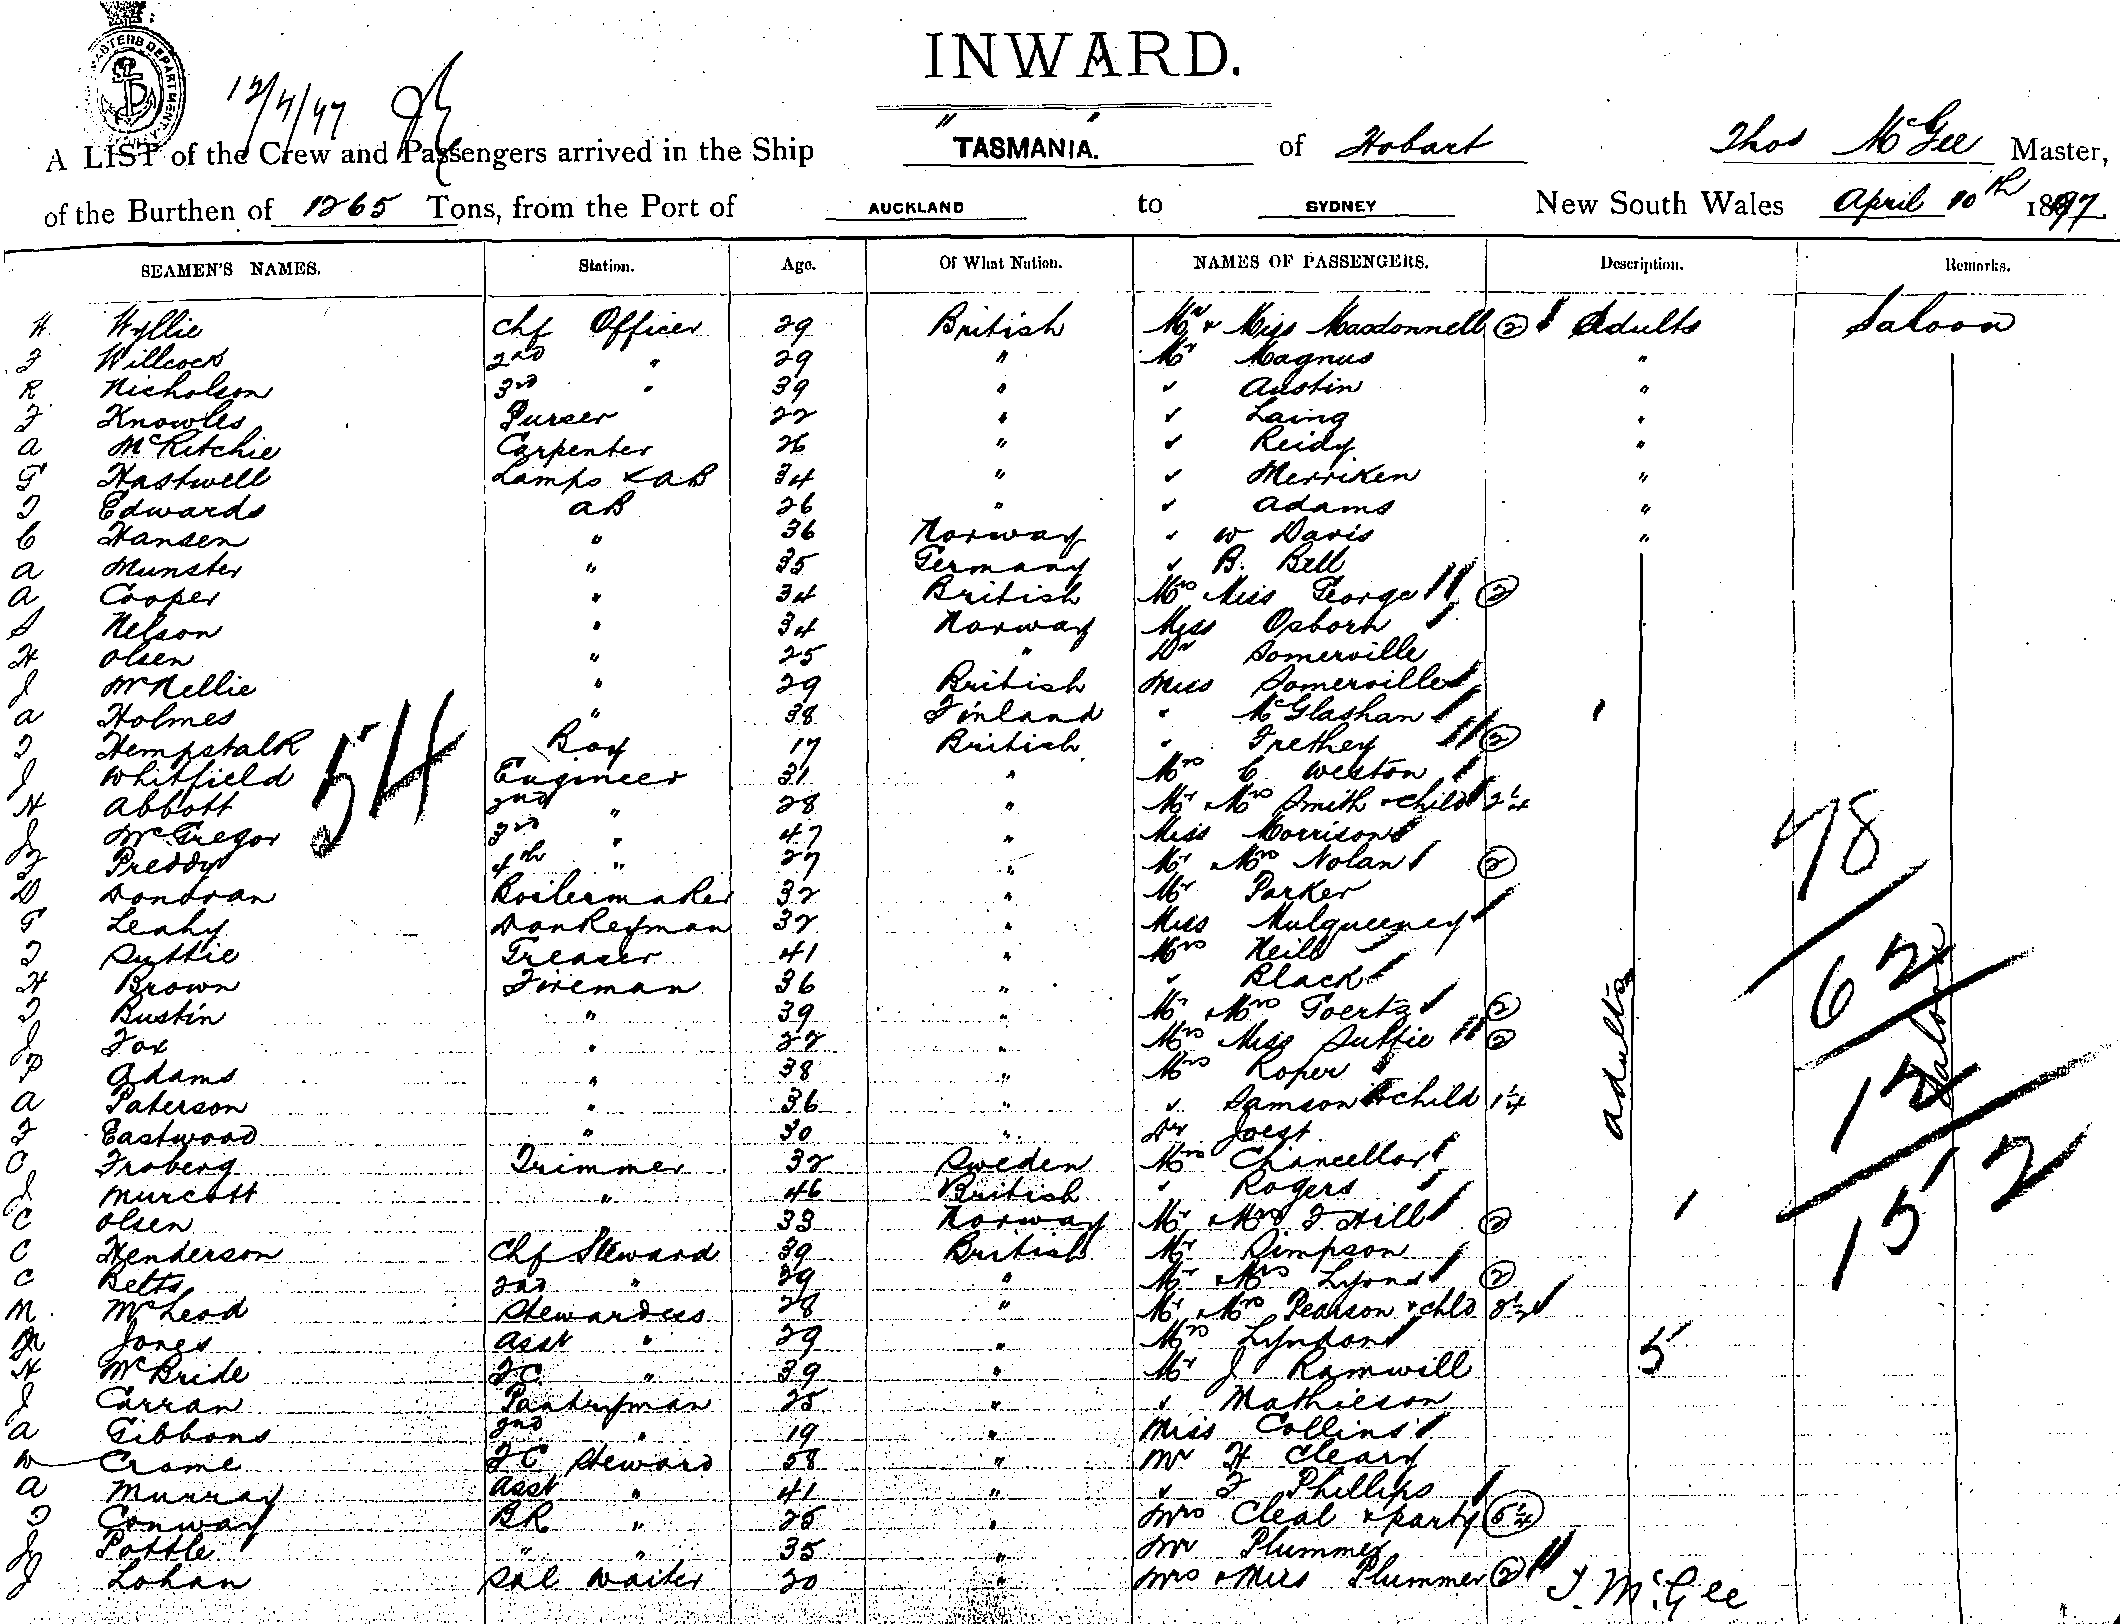 INWARD.
12/4/97
A LIST of the Crew and Passengers arrived in the Ship "TASMANIA." of Hobart Thos McGee Master,
of the Burthen of 1265 Tons, from the Port of AUCKLAND to SYDNEY New South Wales April 10th 1897
SEAMEN'S NAMES. Station. Age. Of What Nation. NAMES OF PASSENGERS. Description. Remarks.
H Wyllie Chf Officer 29 British Mr & Miss Macdonnell 2 Adults Saloon
F Willcock 2nd " 29 " Mr Magnus "
R Nicholson 3rd " 39 " " Austin "
F Knowles Purser 22 " " Laing "
A McRitchie Carpenter 26 " " Reidy "
G Hastwell Lamps & AB 34 " " Merriken "
T Edwards AB 26 " " Adams "
C Hansen " 36 Norway " W Davis "
A Munster " 35 Germany " B. Bell
A Cooper " 34 British Mrs Miss George 2
S Nelson " 34 Norway Miss Osborn
H Olsen " 25 " Dr Somerville
J McKellie " 29 British Miss Somerville
A Holmes " 38 Finland " McGlashan
T Hempstalk Boy 17 British " Trethey 2
54
J Whitfield Engineer 31 " Mrs C Weston
H Abbott 2nd " 28 " Mr & Mrs Smith & child 2 1/4
J McGregor 3rd " 47 " Miss Morrison
F Preddy 4th " 27 " Mr & Mrs Nolan 2
78
D Donovan Boilermaker 32 " Mr Parker
G Leahy Donkeyman 32 " Miss Mulqueeney
T Suttie Greaser 41 " Mrs Neill
H Brown Fireman 36 " " Black
62
T Bustin " 39 " Mr & Mrs Goertz 2
J Fox " 22 " Mrs Miss Suttie 2
P Adams " 38 " Mrs Roper
Adults Saloon
A Paterson " 36 " " Samson & child 1 1/4
12
F Eastwood " 30 " Dr Joest
O Froberg Trimmer 32 Sweden Mrs Chancellor
J Murcott " 46 British " Rogers
152
C Olsen " 33 Norway Mr & Mrs F Hill 2
C Henderson Chf Steward 39 British Mr Simpson
C Betts 2nd " 29 " Mr & Mrs Lyons 2
M McLeod Stewardess 28 " Mr & Mrs Pearson & chld 2 1/2
M Jones Asst " 29 " Mrs Lyndon
5
H McBride FC " 39 " Mr J Ramwill
J Carran Pantryman 25 " " Mathieson
A Gibbons 2nd " 19 " Miss Collins
W Crome FC Steward 58 " Mr H Cleary
A Murray Asst " 41 " " F Phillips
T Conway BR " 25 " Mrs Cleal & party 5 1/4
J Pottle " " 35 " Mr Plummer
J Lohan Sal Waiter 20 " Mrs & Miss Plummer 2
T. McGee